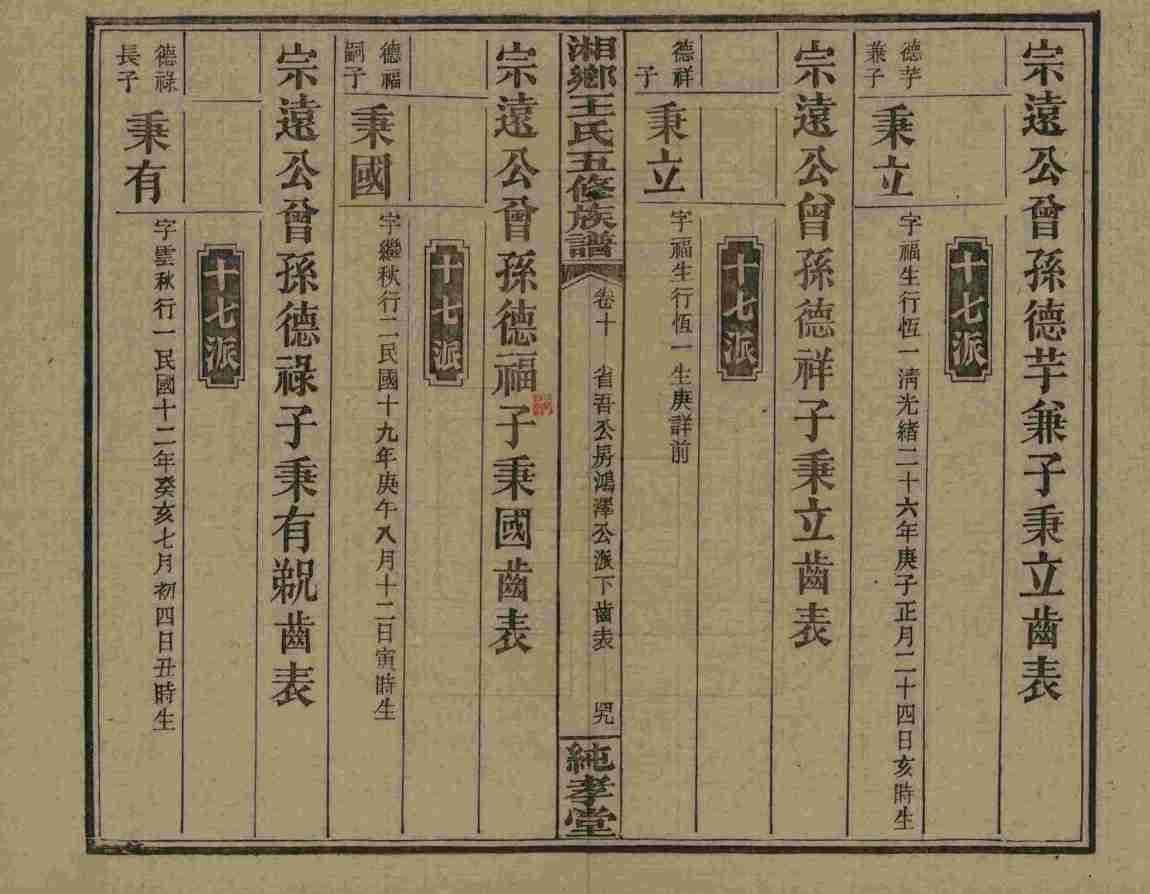 宗遠公曾孫德芋兼子秉立齒表
十七派
德芋
兼子
秉立
字福生行恆一清光緒二十六年庚子正月二十四日亥時生
宗遠公曾孫德祥子秉立齒表
十七派
德祥
子
秉立
字福生行恆一生庚詳前
湘鄉王氏五修族譜
卷十
省吾公房鴻澤公派下齒表
純孝堂
宗遠公曾孫德福子秉國齒表
十七派
德福
嗣子
秉國
字繼秋行二民國十九年庚午八月十二日寅時生
宗遠公曾孫德祿子秉有覡齒表
十七派
德祿
長子
秉有
字雲秋行一民國十二年癸亥七月初四日丑時生